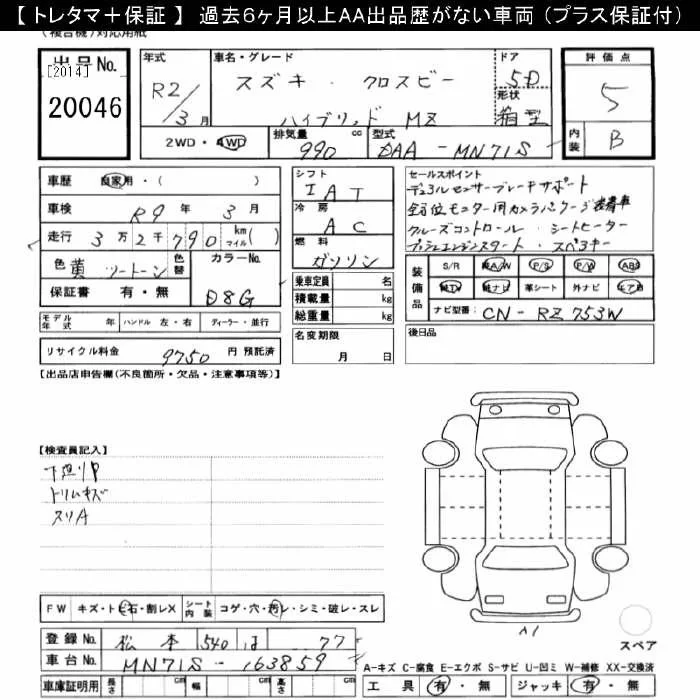 【 トレタマ＋保証 】 過去６ヶ月以上ＡＡ出品歴がない車両（プラス保証付）
(複合機)対応用紙
出品No.
[2014]
20046
年式
R2/3月
車名・グレード
スズキ・クロスビー
ハイブリッド MZ
ドア
5D
形状
箱型
評価点
5
内装
B
2WD・4WD
排気量 990 cc
型式 DAA - MN71S
車歴 自家用・( )
車検 R9 年 3 月
走行 3万2千790 km マイル( )
色 黄 ツートーン
色替
カラーNo. D8G
保証書 有・無
モデル年式 年 ハンドル 左・右 ディーラー・並行
リサイクル料金 9750 円 預託済
シフト
IAT
冷房
AC
燃料
ガソリン
乗車定員 名
積載量 kg
総重量 kg
名変期限
月 日
セールスポイント
デュアルセンサーブレーキサポート
全方位モニター用カメラパッケージ装着車
クルーズコントロール・シートヒーター
プッシュエンジンスタート・スペアキー
装備品
S/R 純A/W P/S P/W ABS
純TV 純ナビ 革シート 外ナビ エアB
ナビ型番: CN-RZ753W
後日品
【出品店申告欄(不良箇所・欠品・注意事項等)】
【検査員記入】
下廻りP
トリムキズ
スリA
A1
スペア
FW キズ・トビ石・割レX シート内装 コゲ・穴・汚レ・シミ・破レ・スレ
登録No. 松本 540 ほ 77
車台No. MN71S-163859
車庫証明用 長さ cm 幅 cm 高さ cm
A-キズ C-腐食 E-エクボ S-サビ U-凹ミ W-補修 XX-交換済
工具 有・無 ジャッキ 有・無